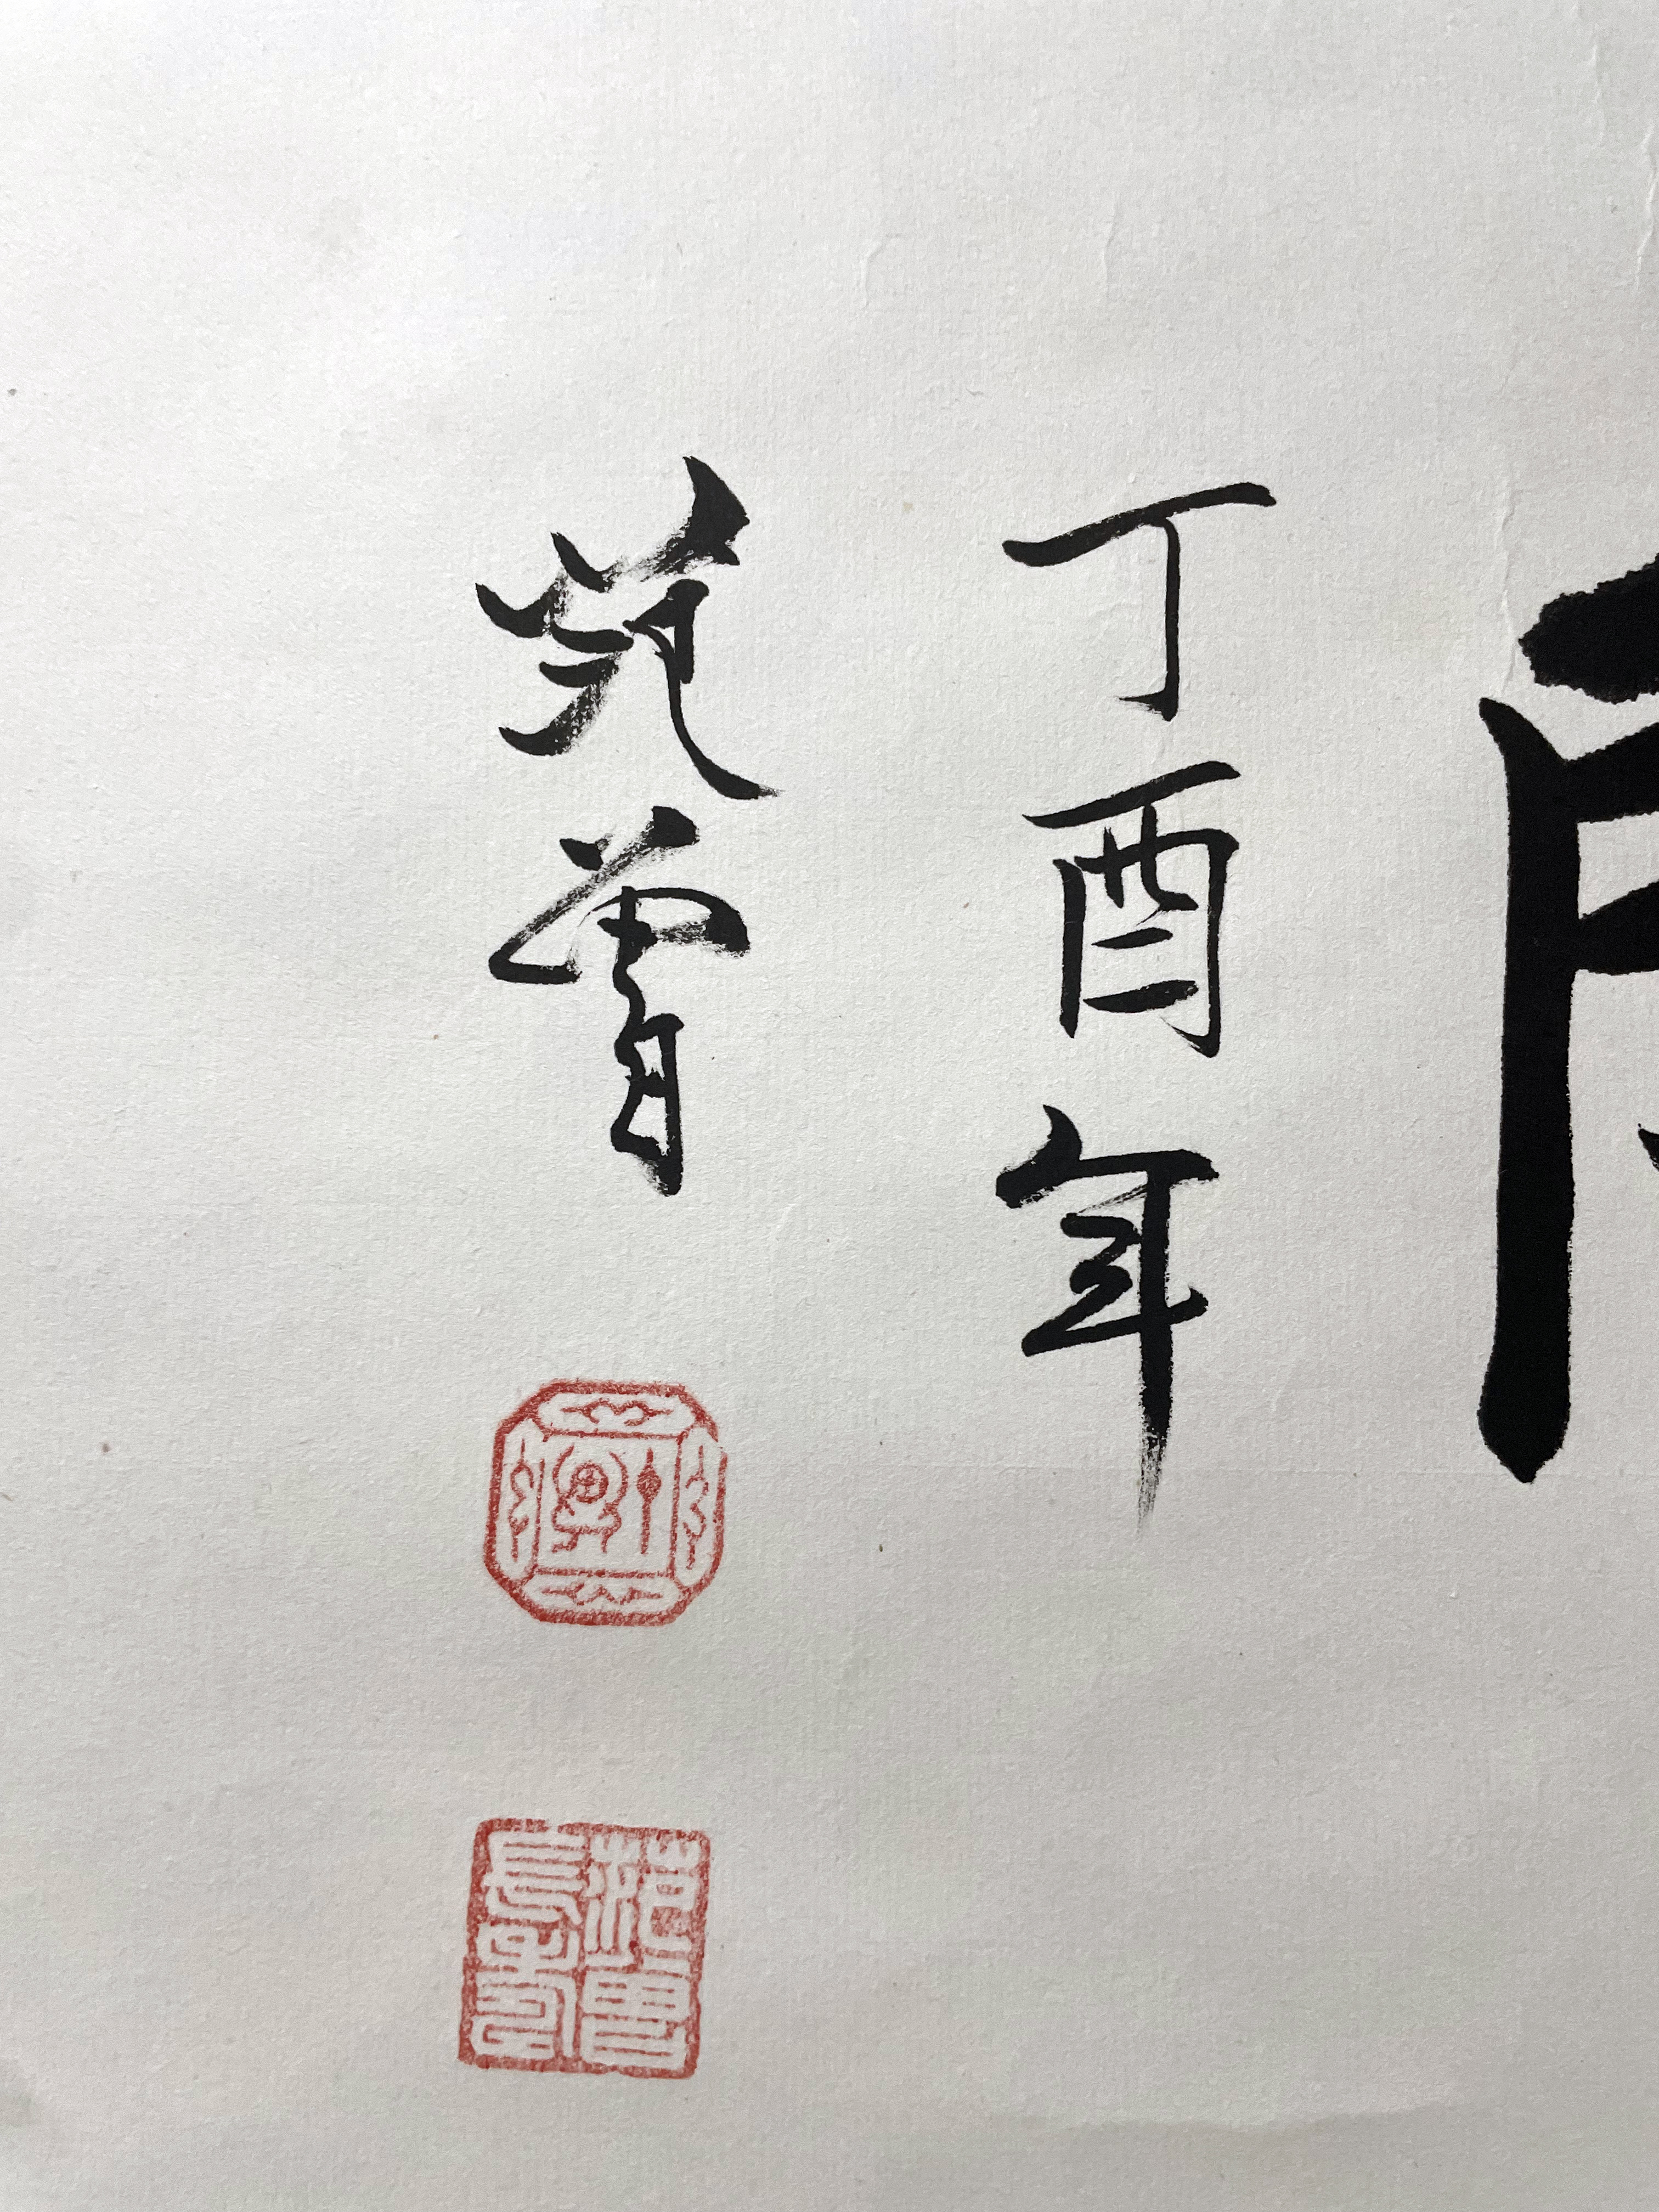 丁酉年
范曾
范曾長壽